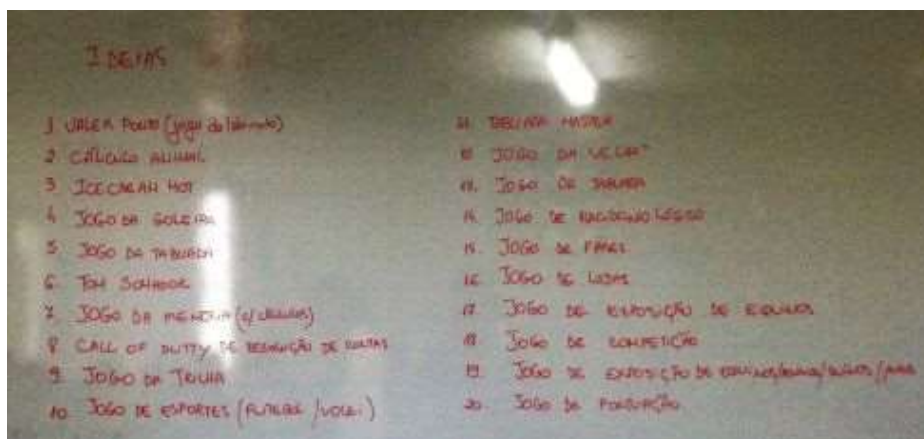 IDEIAS
1. VALER PONTO (jogo do labirinto)
2. CÁLCULO ANIMAL
3. ICECREAM HOT
4. JOGO DA GOLEIRA
5. JOGO DA TABUADA
6. TOM
7. JOGO DA MEMÓRIA (c/ cálculos)
8. CALL OF DUTTY DE RESOLUÇÃO DE CONTAS
9. JOGO DA TRILHA
10. JOGO DE ESPORTES (FUTEBOL / VOLEI)
11. TABUADA
12. JOGO DA VELHA
13. JOGO DE TABUADA
14. JOGO DE RACIOCINIO LÓGICO
15. JOGO DE FASES
16. JOGO DE
17. JOGO DE EXPOSIÇÃO DE EQUINOS
18. JOGO DE COMPETIÇÃO
19. JOGO DE EXPOSIÇÃO DE EQUINOS
20. JOGO DE